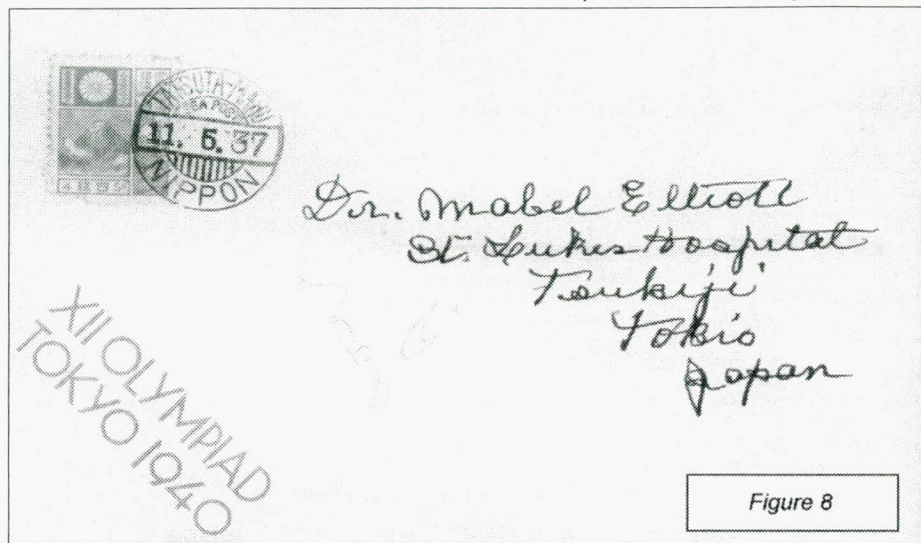 TATSUTA-MARU
SEA POST
11. 5. 37
NIPPON
Dr. Mabel Elliott
St. Lukes Hospital
Tsukiji
Tokio
Japan
XII OLYMPIAD
TOKYO 1940
Figure 8